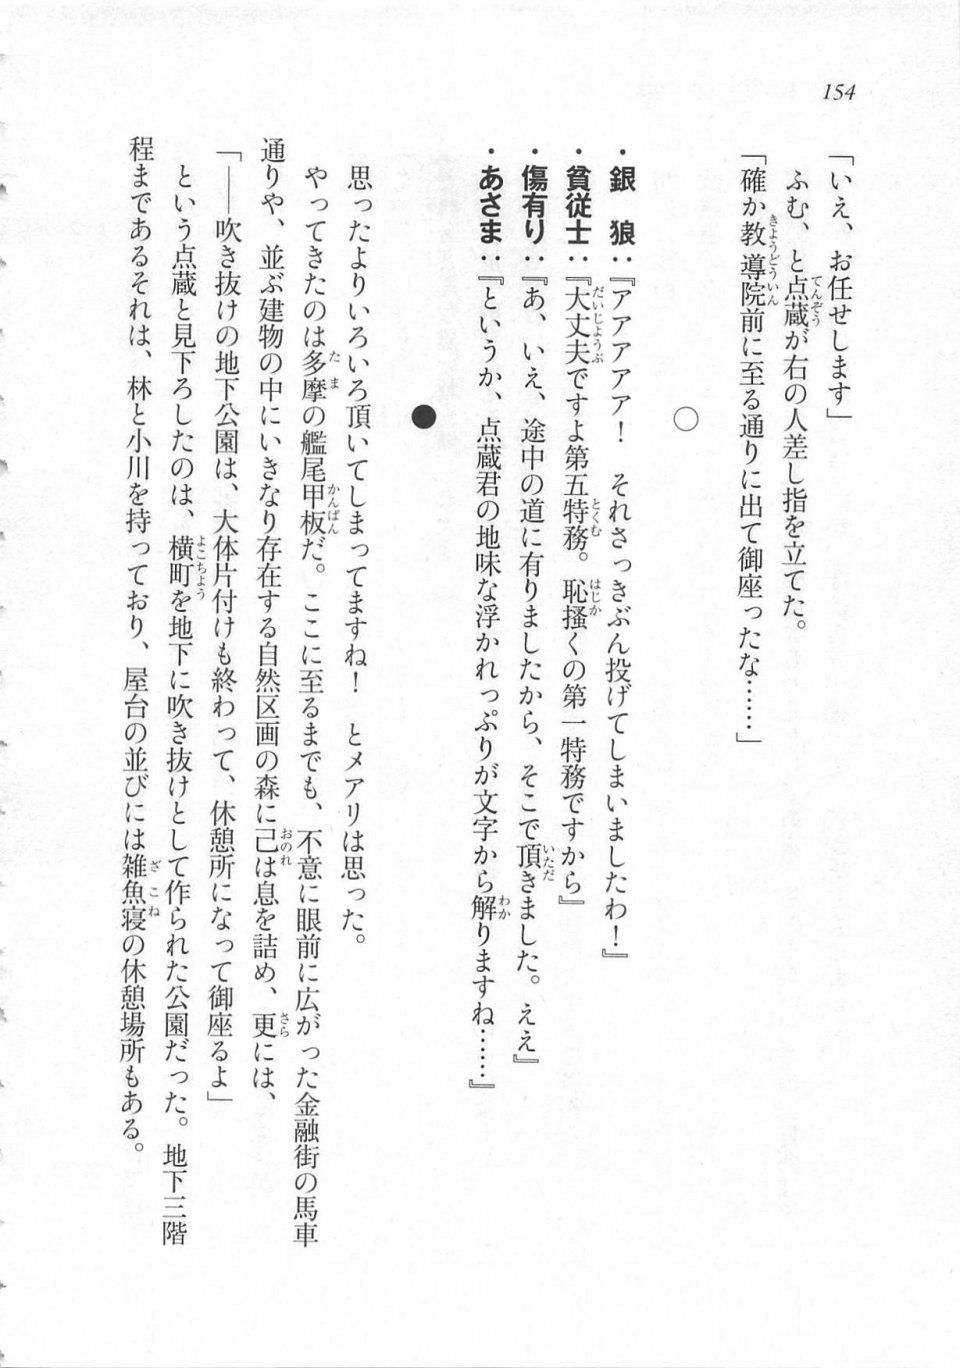 154
「いえ、お任せします」
ふむ、と点蔵が右の人差し指を立てた。
「確か教導院前に至る通りに出て御座ったな……」
○
・銀　狼：『アアアア！　それさっきぶん投げてしまいましたわ！』
・貧従士：『大丈夫ですよ第五特務。恥掻くの第一特務ですから』
・傷有り：『あ、いえ、途中の道に有りましたから、そこで頂きました。ええ』
・あさま：『というか、点蔵君の地味な浮かれっぷりが文字から解りますね……』
●
思ったよりいろいろ頂いてしまってますね！　とメアリは思った。
やってきたのは多摩の艦尾甲板だ。ここに至るまでも、不意に眼前に広がった金融街の馬車
通りや、並ぶ建物の中にいきなり存在する自然区画の森に己は息を詰め、更には、
「――吹き抜けの地下公園は、大体片付けも終わって、休憩所になって御座るよ」
という点蔵と見下ろしたのは、横町を地下に吹き抜けとして作られた公園だった。地下三階
程まであるそれは、林と小川を持っており、屋台の並びには雑魚寝の休憩場所もある。